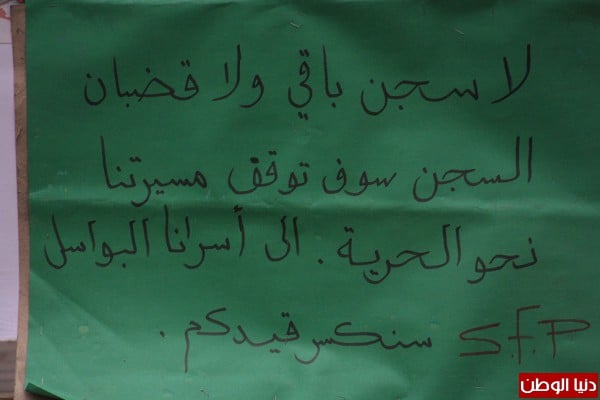 لا سجن باقي ولا قضبان
السجن سوف توقف مسيرتنا
نحو الحرية . الى أسرانا البواسل
سنكسر قيدكم . S.F.P
دنيا الوطن